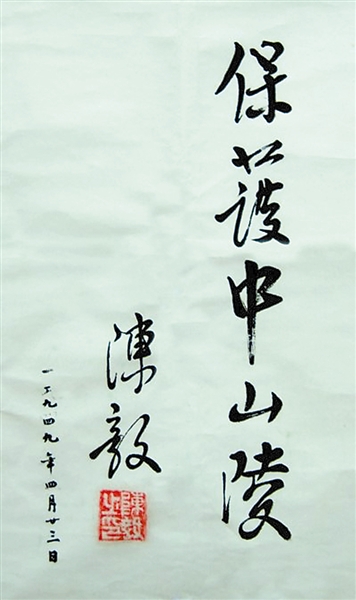 保護中山陵
陳毅
一九四九年四月廿三日
陳毅之印